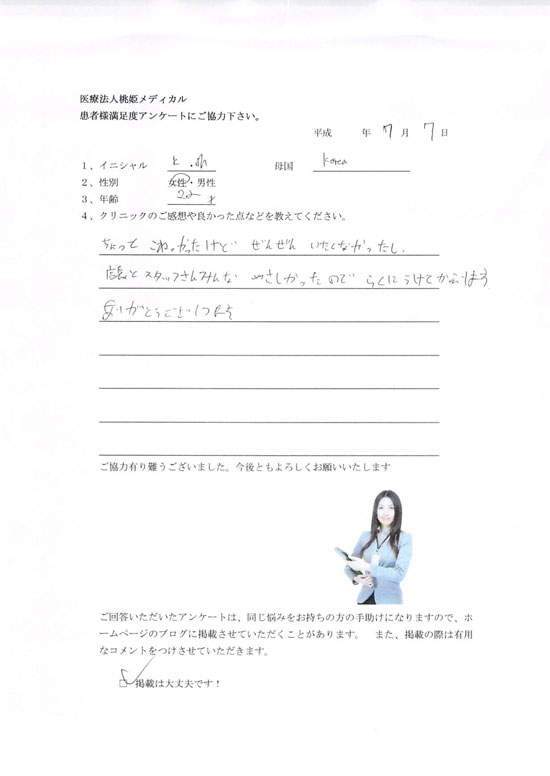 医療法人桃姫メディカル
患者様満足度アンケートにご協力下さい。
平成 年 7 月 7 日
1、イニシャル 母国 korea
2、性別 女性・男性
3、年齢 22 才
4、クリニックのご感想や良かった点などを教えてください。
ちょって こわかったけど ぜんぜん いたくなかったし、
店長とスタッフさんみんな やさしかったので らくに うけて
ありがとうございます
ご協力有り難うございました。今後ともよろしくお願いいたします
ご回答いただいたアンケートは、同じ悩みをお持ちの方の手助けになりますので、ホ
ームページのブログに掲載させていただくことがあります。 また、掲載の際は有用
なコメントをつけさせていただきます。
□ 掲載は大丈夫です！